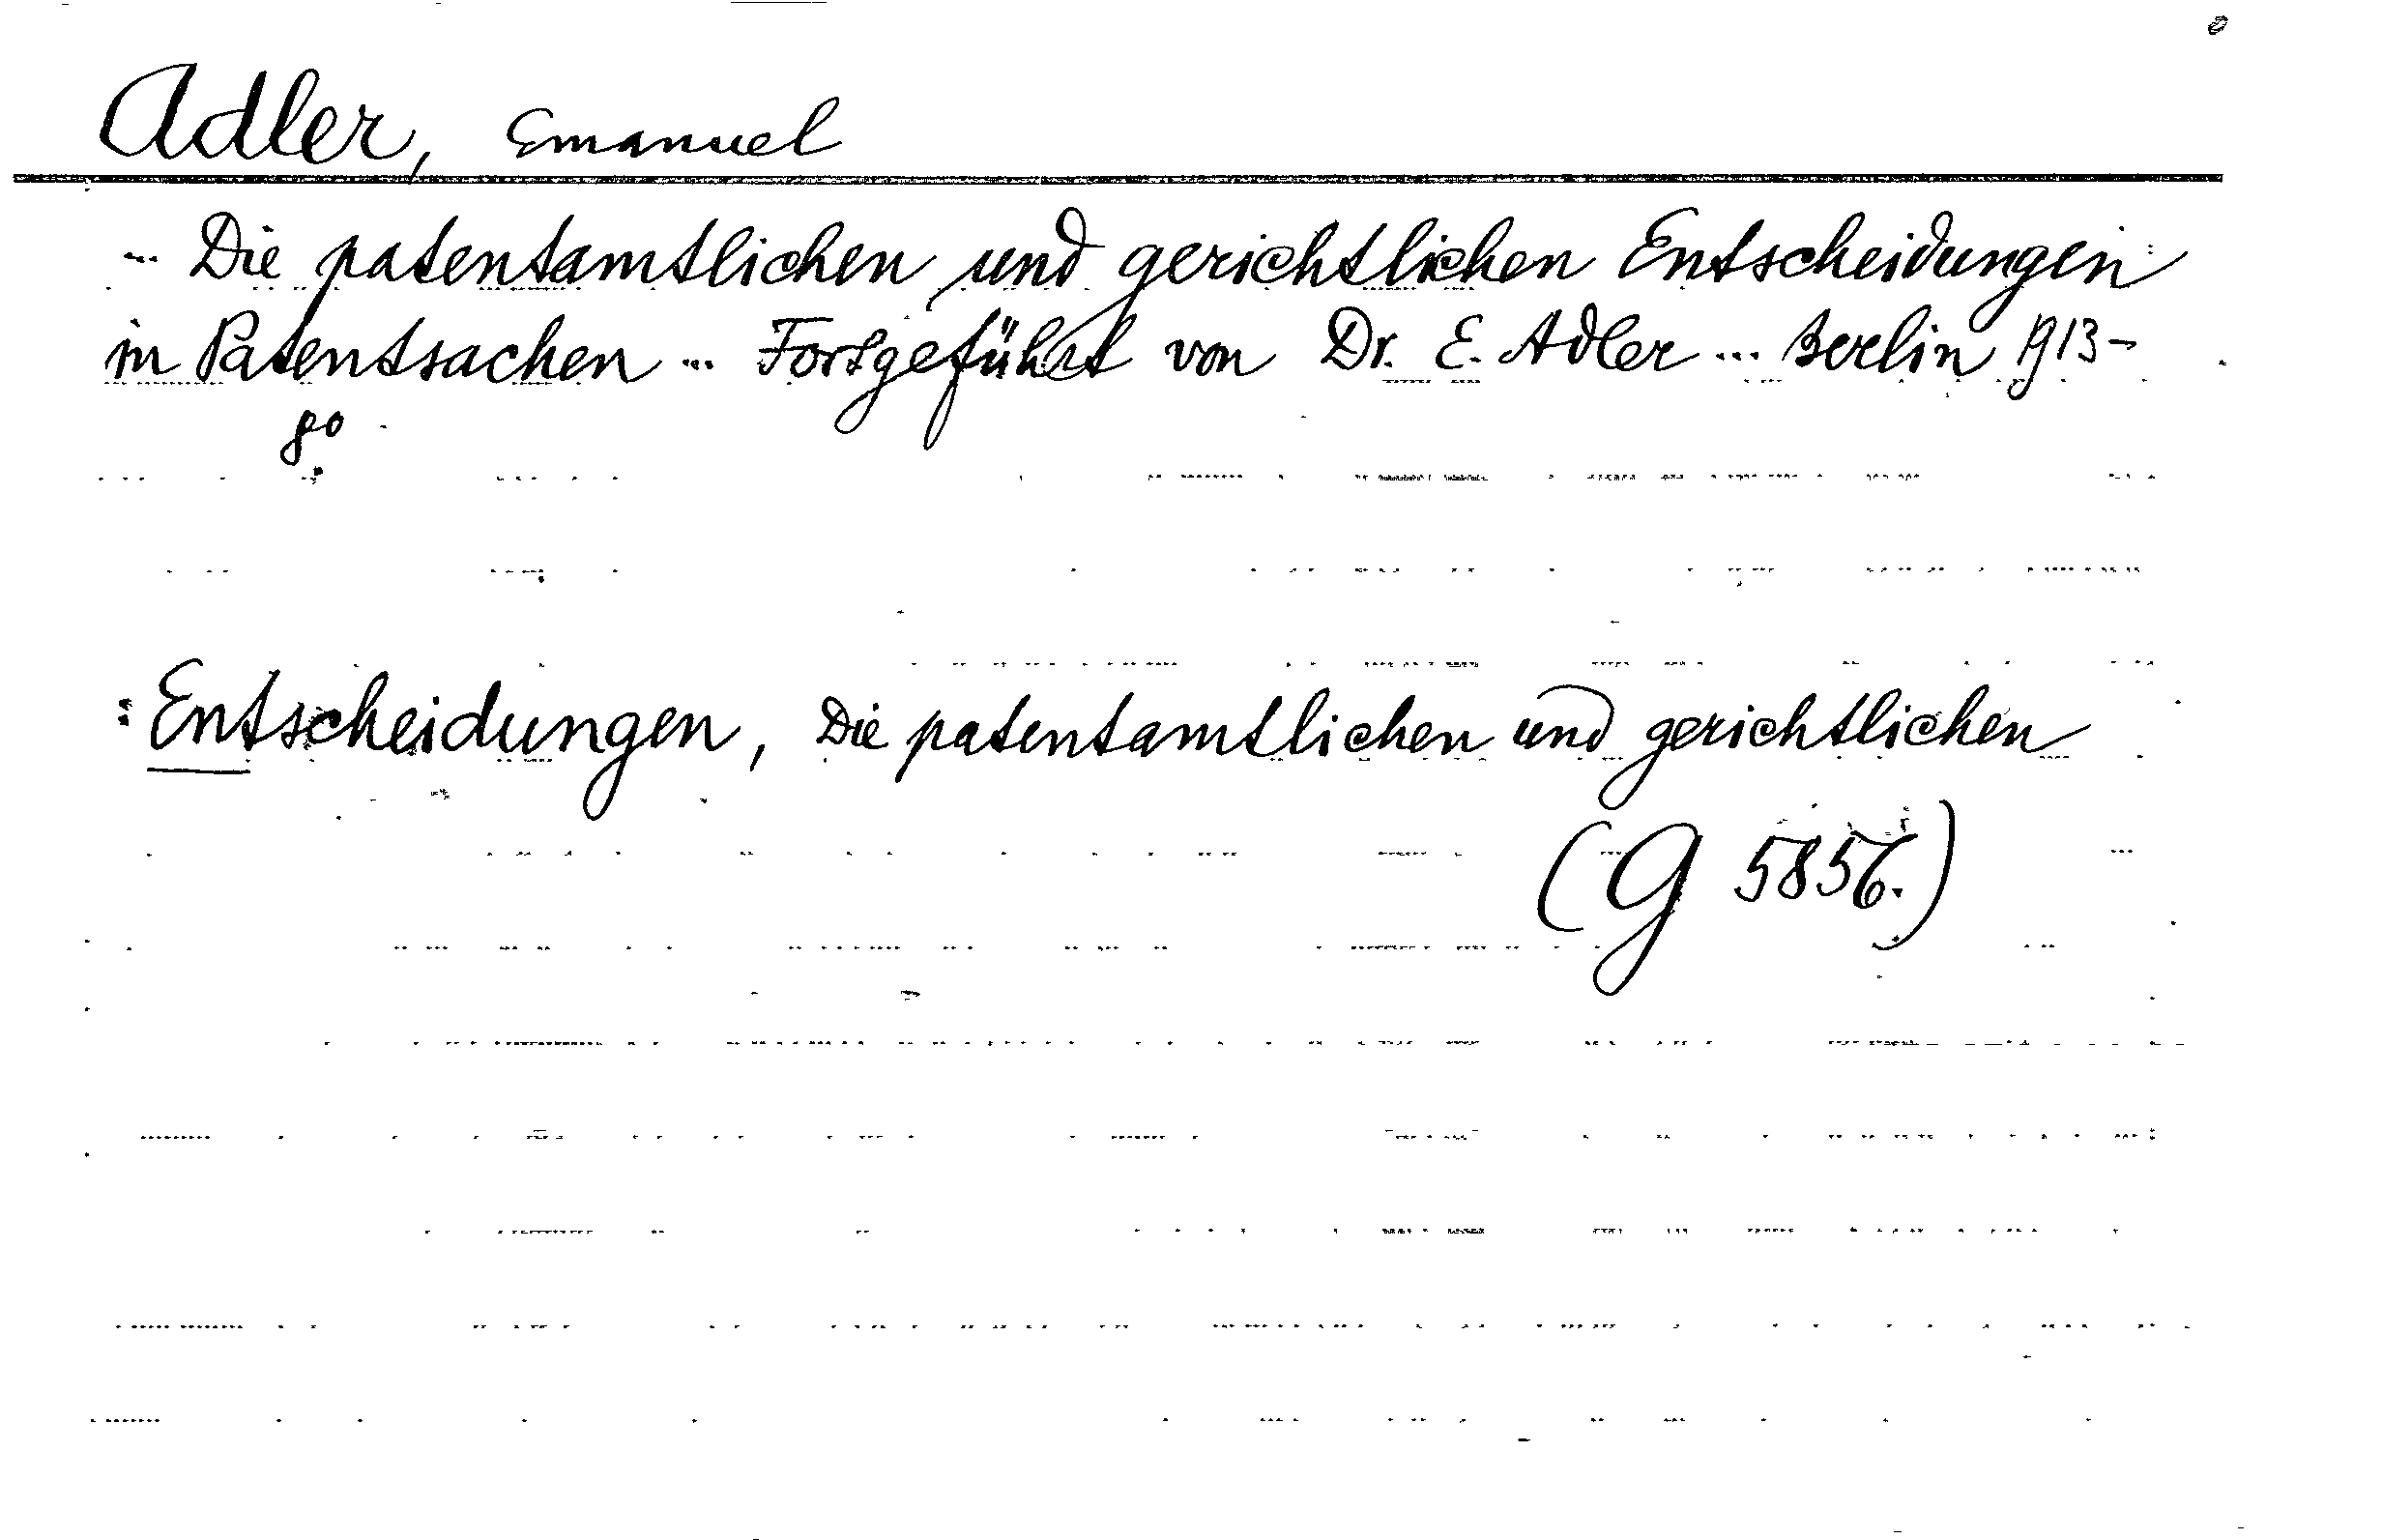 Adler, Emanuel
... Die patentamtlichen und gerichtlichen Entscheidungen
in Patentsachen ... Fortgeführt von Dr. E. Adler ... Berlin 1913-
8°
: Entscheidungen, Die patentamtlichen und gerichtlichen
(G 5856.)